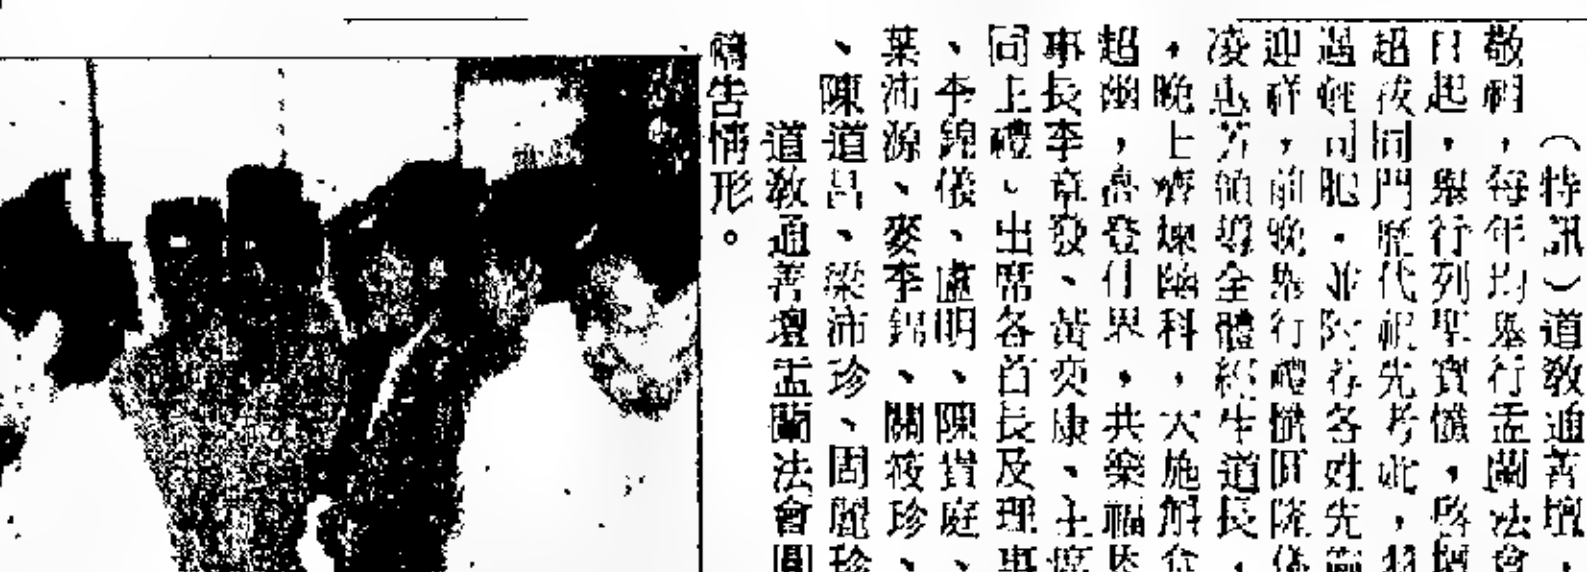 （特訊）道敎通善壇，
敬祖，每年均舉行盂蘭法會
日起，舉行列聖寶懺，啓壇
超拔同門歷代祝先考妣，
過輕司肥，並附荐各姓先
迎祥，前晚舉行禮懺
凌惠芳領導全體經生道長，
，晚上齋煉幽科，大施解
超幽，高登什界，共樂福
事長李章發、黃奕康、主席
同上禮、出席各首長及理事
、李錦儀、盧明、陳貴庭、
葉沛源、麥李錦、關筱珍、
、陳道昌、梁沛珍、周麗珍
道敎通善壇盂蘭法會
告情形。